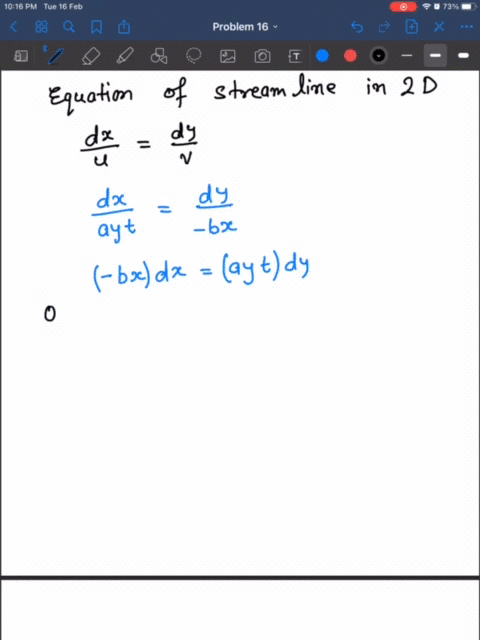 10:16 PM Tue 16 Feb 73%
Problem 16
T
Equation of stream line in 2D
dx/u = dy/v
dx/ayt = dy/-bx
(-bx)dx = (ayt)dy
O